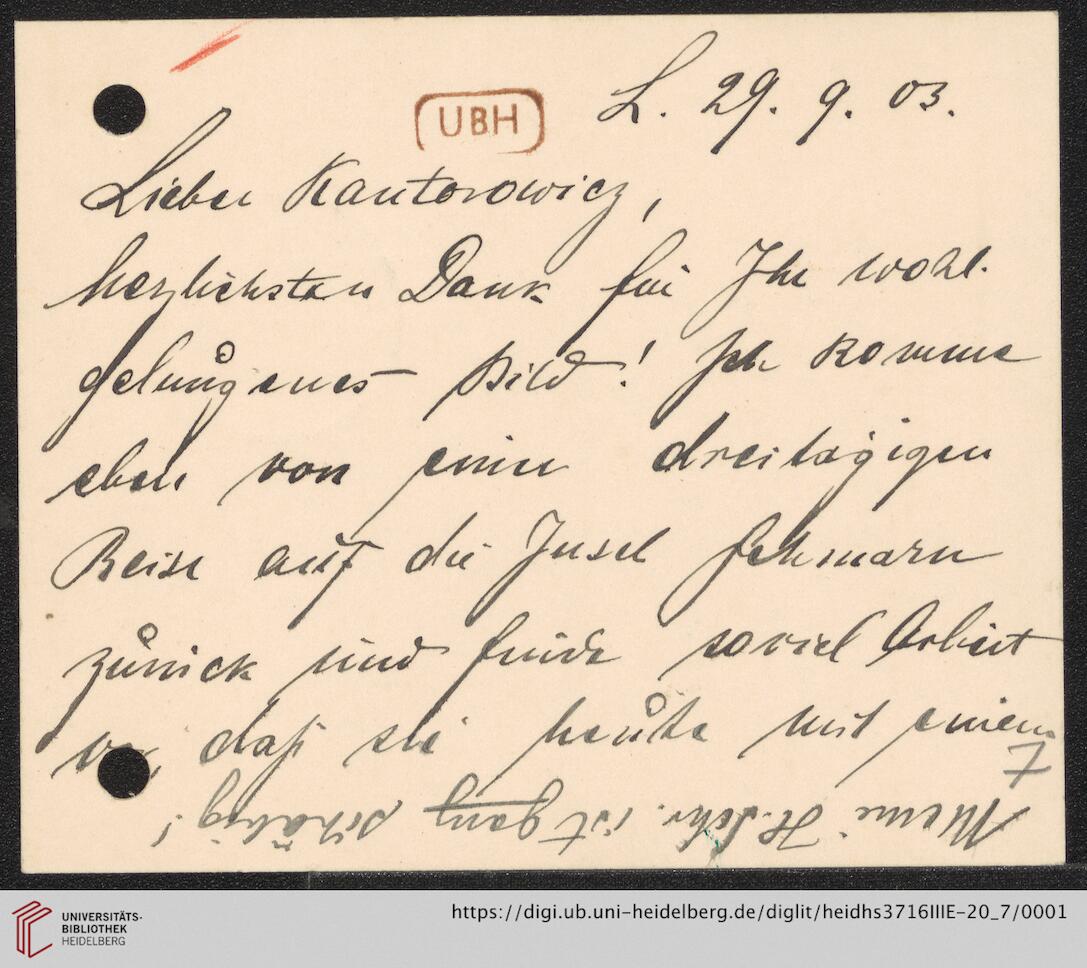 L. 29. 9. 03.
UBH
Lieber Kantorowicz,
herzlichsten Dank für Ihr wohl-
gelungenes Bild! Ich komme
eben von einer dreitägigen
Reise auf die Insel Fehmarn
zurück und finde soviel Arbeit
vor, daß sie heute mit einem
7
Meine H.schr. ist ganz schäbig!
UNIVERSITÄTS-
BIBLIOTHEK
HEIDELBERG
https://digi.ub.uni-heidelberg.de/diglit/heidhs3716IIIE-20_7/0001